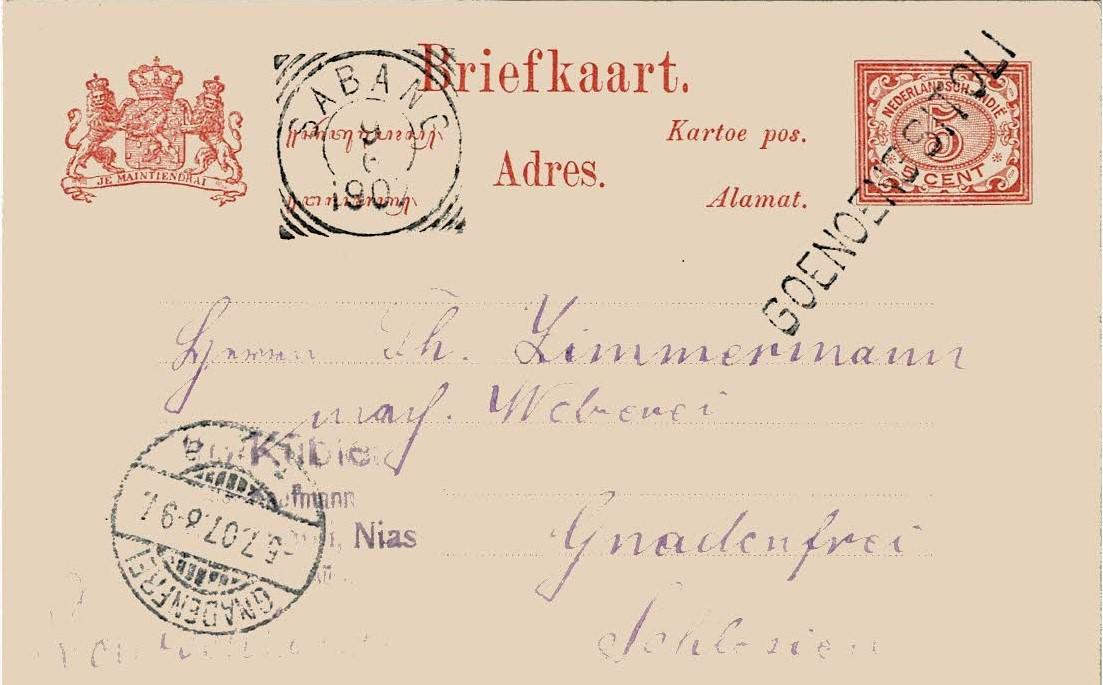 Briefkaart.
JE MAINTIENDRAI
SABANG
8
6
1907
Adres.
Kartoe pos.
Alamat.
NEDERLANDSCH-INDIË
5
CENT
GOENOENG SITOLI
Herrn Th. Zimmermann
mech. Weberei
Kübler
Kaufmann
Nias
Gnadenfrei
Schlesien
GNADENFREI
-5.7.07.8-9V.